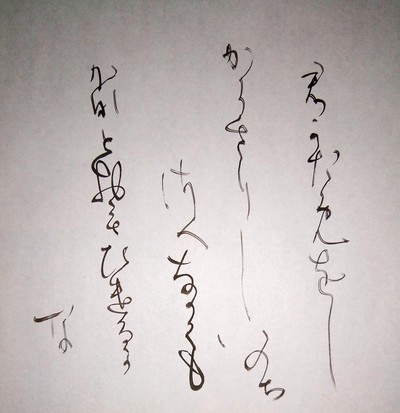 君かためをし
からさりしいのち
さへなかくも
かなとおもひけるか
な